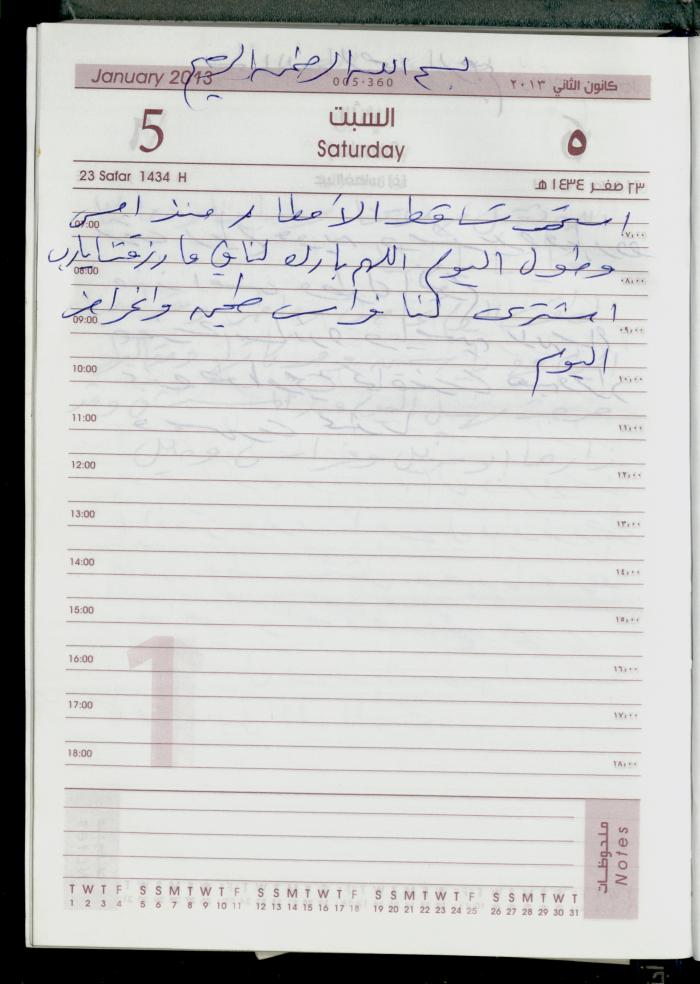 بسم الله الرحمن الرحيم
January 2013 005-360 كانون الثاني ٢٠١٣
5 السبت ٥
Saturday
23 Safar 1434 H ٢٣ صفر ١٤٣٤ هـ
استمر تساقط الأمطار منذ امس
07:00 ٠٧,٠٠
وطول اليوم اللهم بارك لنا في ما رزقتنا يارب
08:00 ٠٨,٠٠
اشترى لنا نواب طحين واغراض
09:00 ٠٩,٠٠
اليوم
10:00 ١٠,٠٠
11:00 ١١,٠٠
12:00 ١٢,٠٠
13:00 ١٣,٠٠
14:00 ١٤,٠٠
15:00 ١٥,٠٠
1
16:00 ١٦,٠٠
17:00 ١٧,٠٠
18:00 ١٨,٠٠
ملحوظات
Notes
T W T F S S M T W T F S S M T W T F S S M T W T F S S M T W T
1 2 3 4 5 6 7 8 9 10 11 12 13 14 15 16 17 18 19 20 21 22 23 24 25 26 27 28 29 30 31